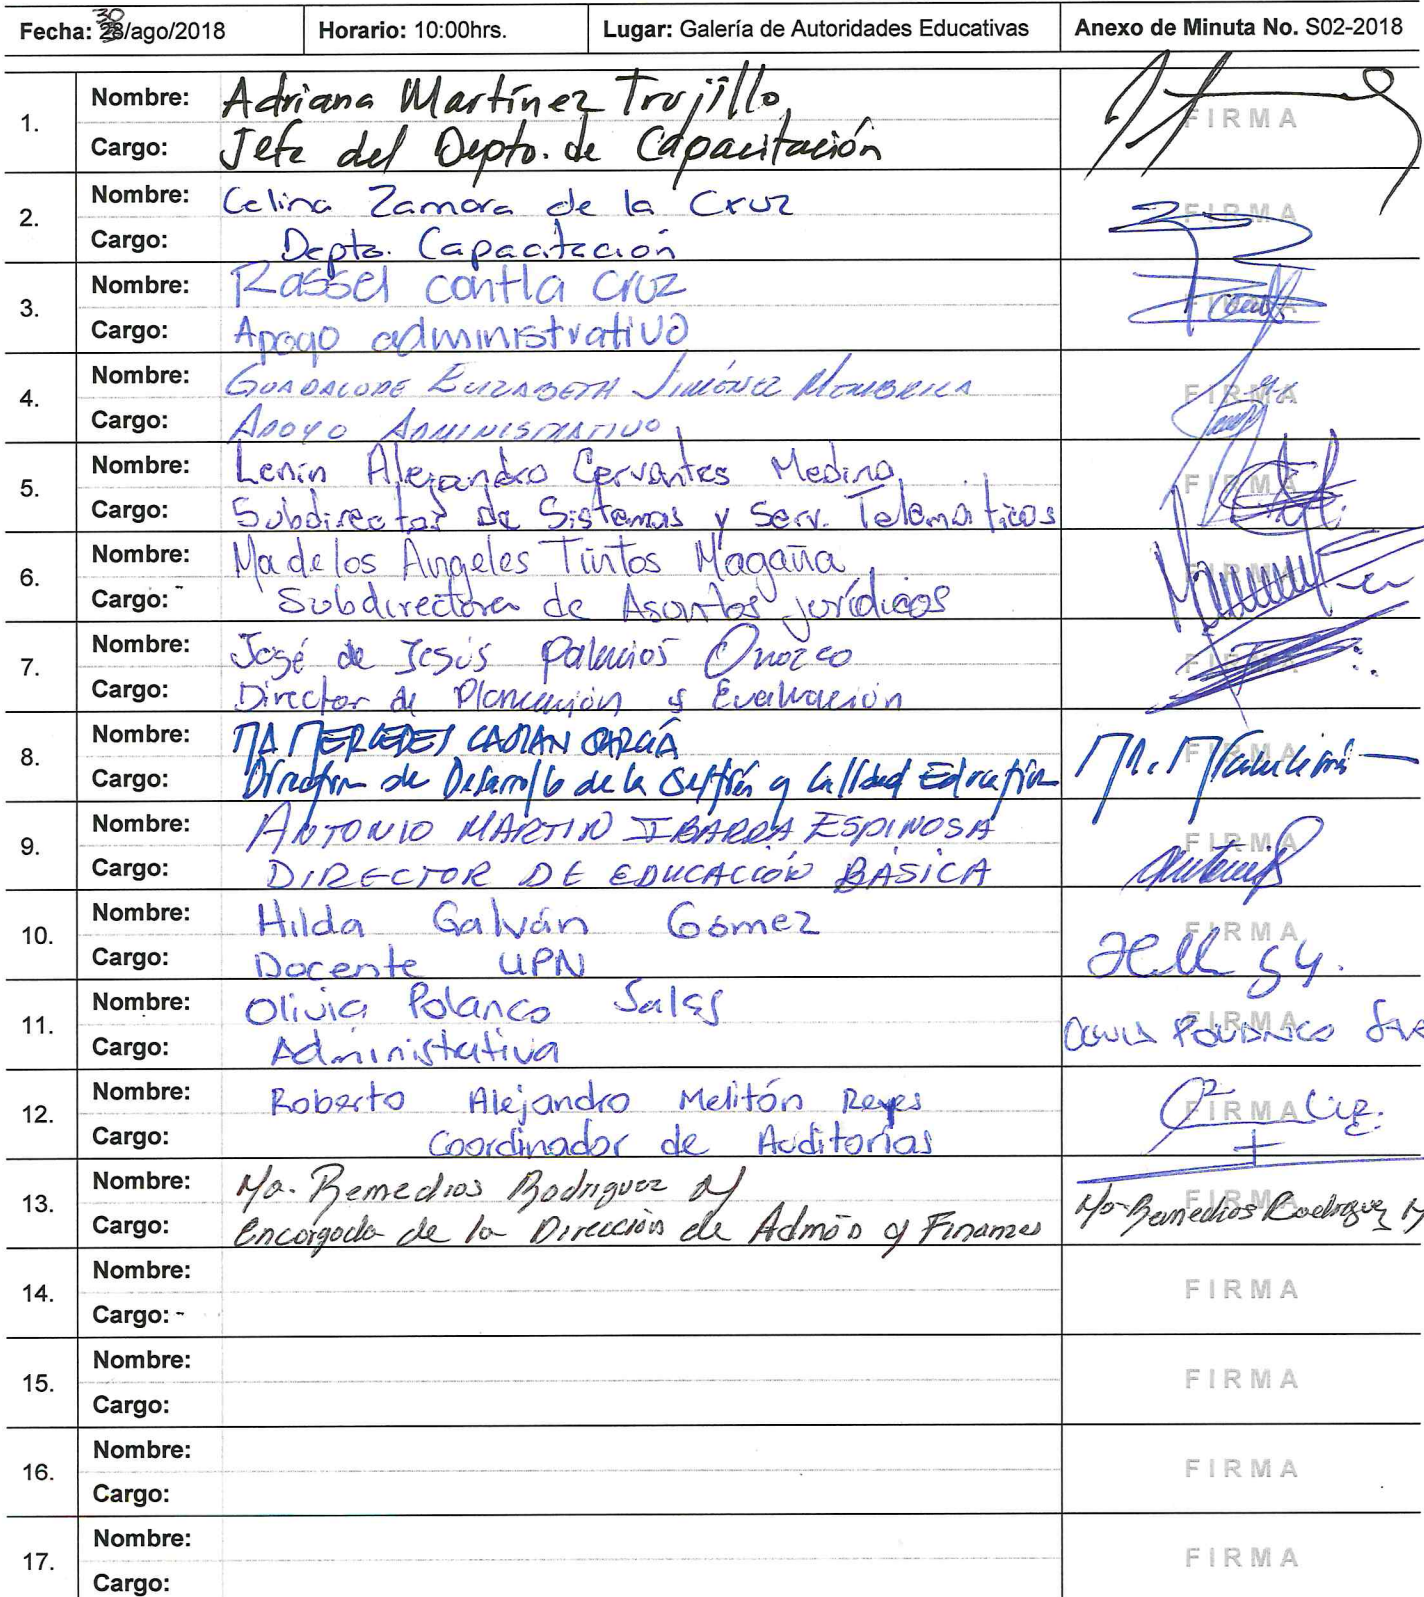 Fecha: 30/ago/2018 Horario: 10:00hrs. Lugar: Galería de Autoridades Educativas Anexo de Minuta No. S02-2018
1. Nombre: Adriana Martínez Trujillo FIRMA
Cargo: Jefe del Depto. de Capacitación
2. Nombre: Celina Zamora de la Cruz FIRMA
Cargo: Depto. Capacitación
3. Nombre: Rassel contla cruz FIRMA
Cargo: Apoyo administrativo
4. Nombre: GUADALUPE ELIZABETH JIMÉNEZ FIRMA
Cargo: APOYO ADMINISTRATIVO
5. Nombre: Lenin Alejandro Cervantes Medina FIRMA
Cargo: Subdirector de Sistemas y Serv. Telemáticos
6. Nombre: Ma de los Angeles Tintos Magaña FIRMA
Cargo: Subdirectora de Asuntos jurídicos
7. Nombre: José de Jesús Palacios Orozco FIRMA
Cargo: Director de Planeación y Evaluación
8. Nombre: MA MERCEDES GARCÍA FIRMA
Cargo: Directora de Desarrollo de la Gestión y Calidad Educativa
9. Nombre: ANTONIO MARTIN IBARRA ESPINOSA FIRMA
Cargo: DIRECTOR DE EDUCACIÓN BÁSICA
10. Nombre: Hilda Galván Gómez FIRMA
Cargo: Docente UPN
11. Nombre: Olivia Polanco Sales FIRMA
Cargo: Administrativa
12. Nombre: Roberto Alejandro Melitón Reyes FIRMA
Cargo: Coordinador de Auditorías
13. Nombre: Ma. Remedios Rodriguez M FIRMA Ma Remedios Rodriguez M
Cargo: Encargada de la Dirección de Admón y Finanzas
14. Nombre: FIRMA
Cargo:
15. Nombre: FIRMA
Cargo:
16. Nombre: FIRMA
Cargo:
17. Nombre: FIRMA
Cargo: